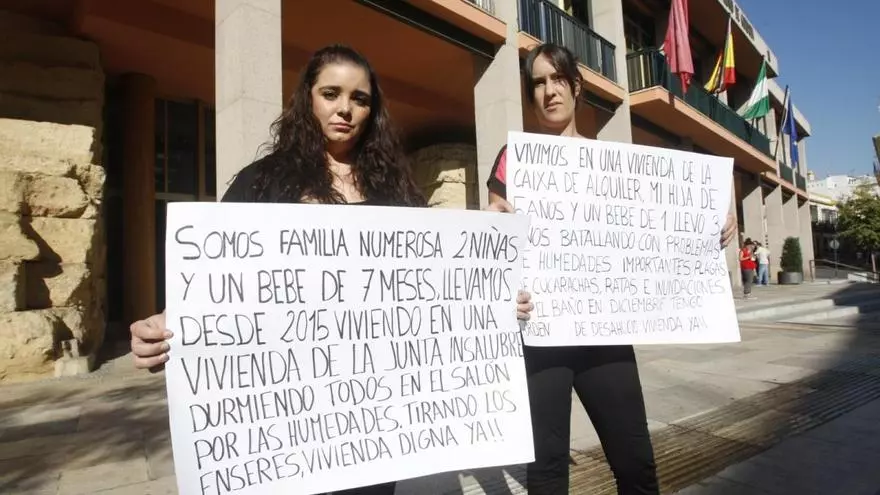 SOMOS FAMILIA NUMEROSA 2 NIÑAS
Y UN BEBE DE 7 MESES, LLEVAMOS
DESDE 2015 VIVIENDO EN UNA
VIVIENDA DE LA JUNTA INSALUBRE
DURMIENDO TODOS EN EL SALÓN
POR LAS HUMEDADES. TIRANDO LOS
ENSERES, VIVIENDA DIGNA YA!!
VIVIMOS EN UNA VIVIENDA DE LA
CAIXA DE ALQUILER, MI HIJA DE
AÑOS Y UN BEBE DE 1 LLEVO 3
BATALLANDO CON PROBLEMAS
DE HUMEDADES IMPORTANTES PLAGAS
CUCARACHAS, RATAS E INUNDACIONES
EL BAÑO EN DICIEMBRE TENGO
DE DESAHUCIO VIVIENDA YA!!